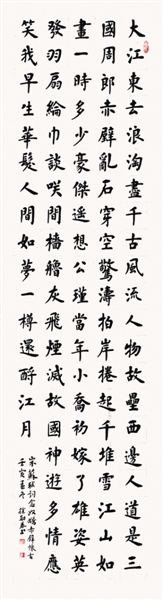 大江東去浪淘盡千古風流人物故壘西邊人道是三
國周郎赤壁亂石穿空驚濤拍岸捲起千堆雪江山如
畫一時多少豪傑遙想公瑾當年小喬初嫁了雄姿英
發羽扇綸巾談咲間檣艣灰飛煙滅故國神遊多情應
笑我早生華髮人間如夢一樽還酹江月
宋蘇軾詞念奴嬌赤壁懷古
壬寅